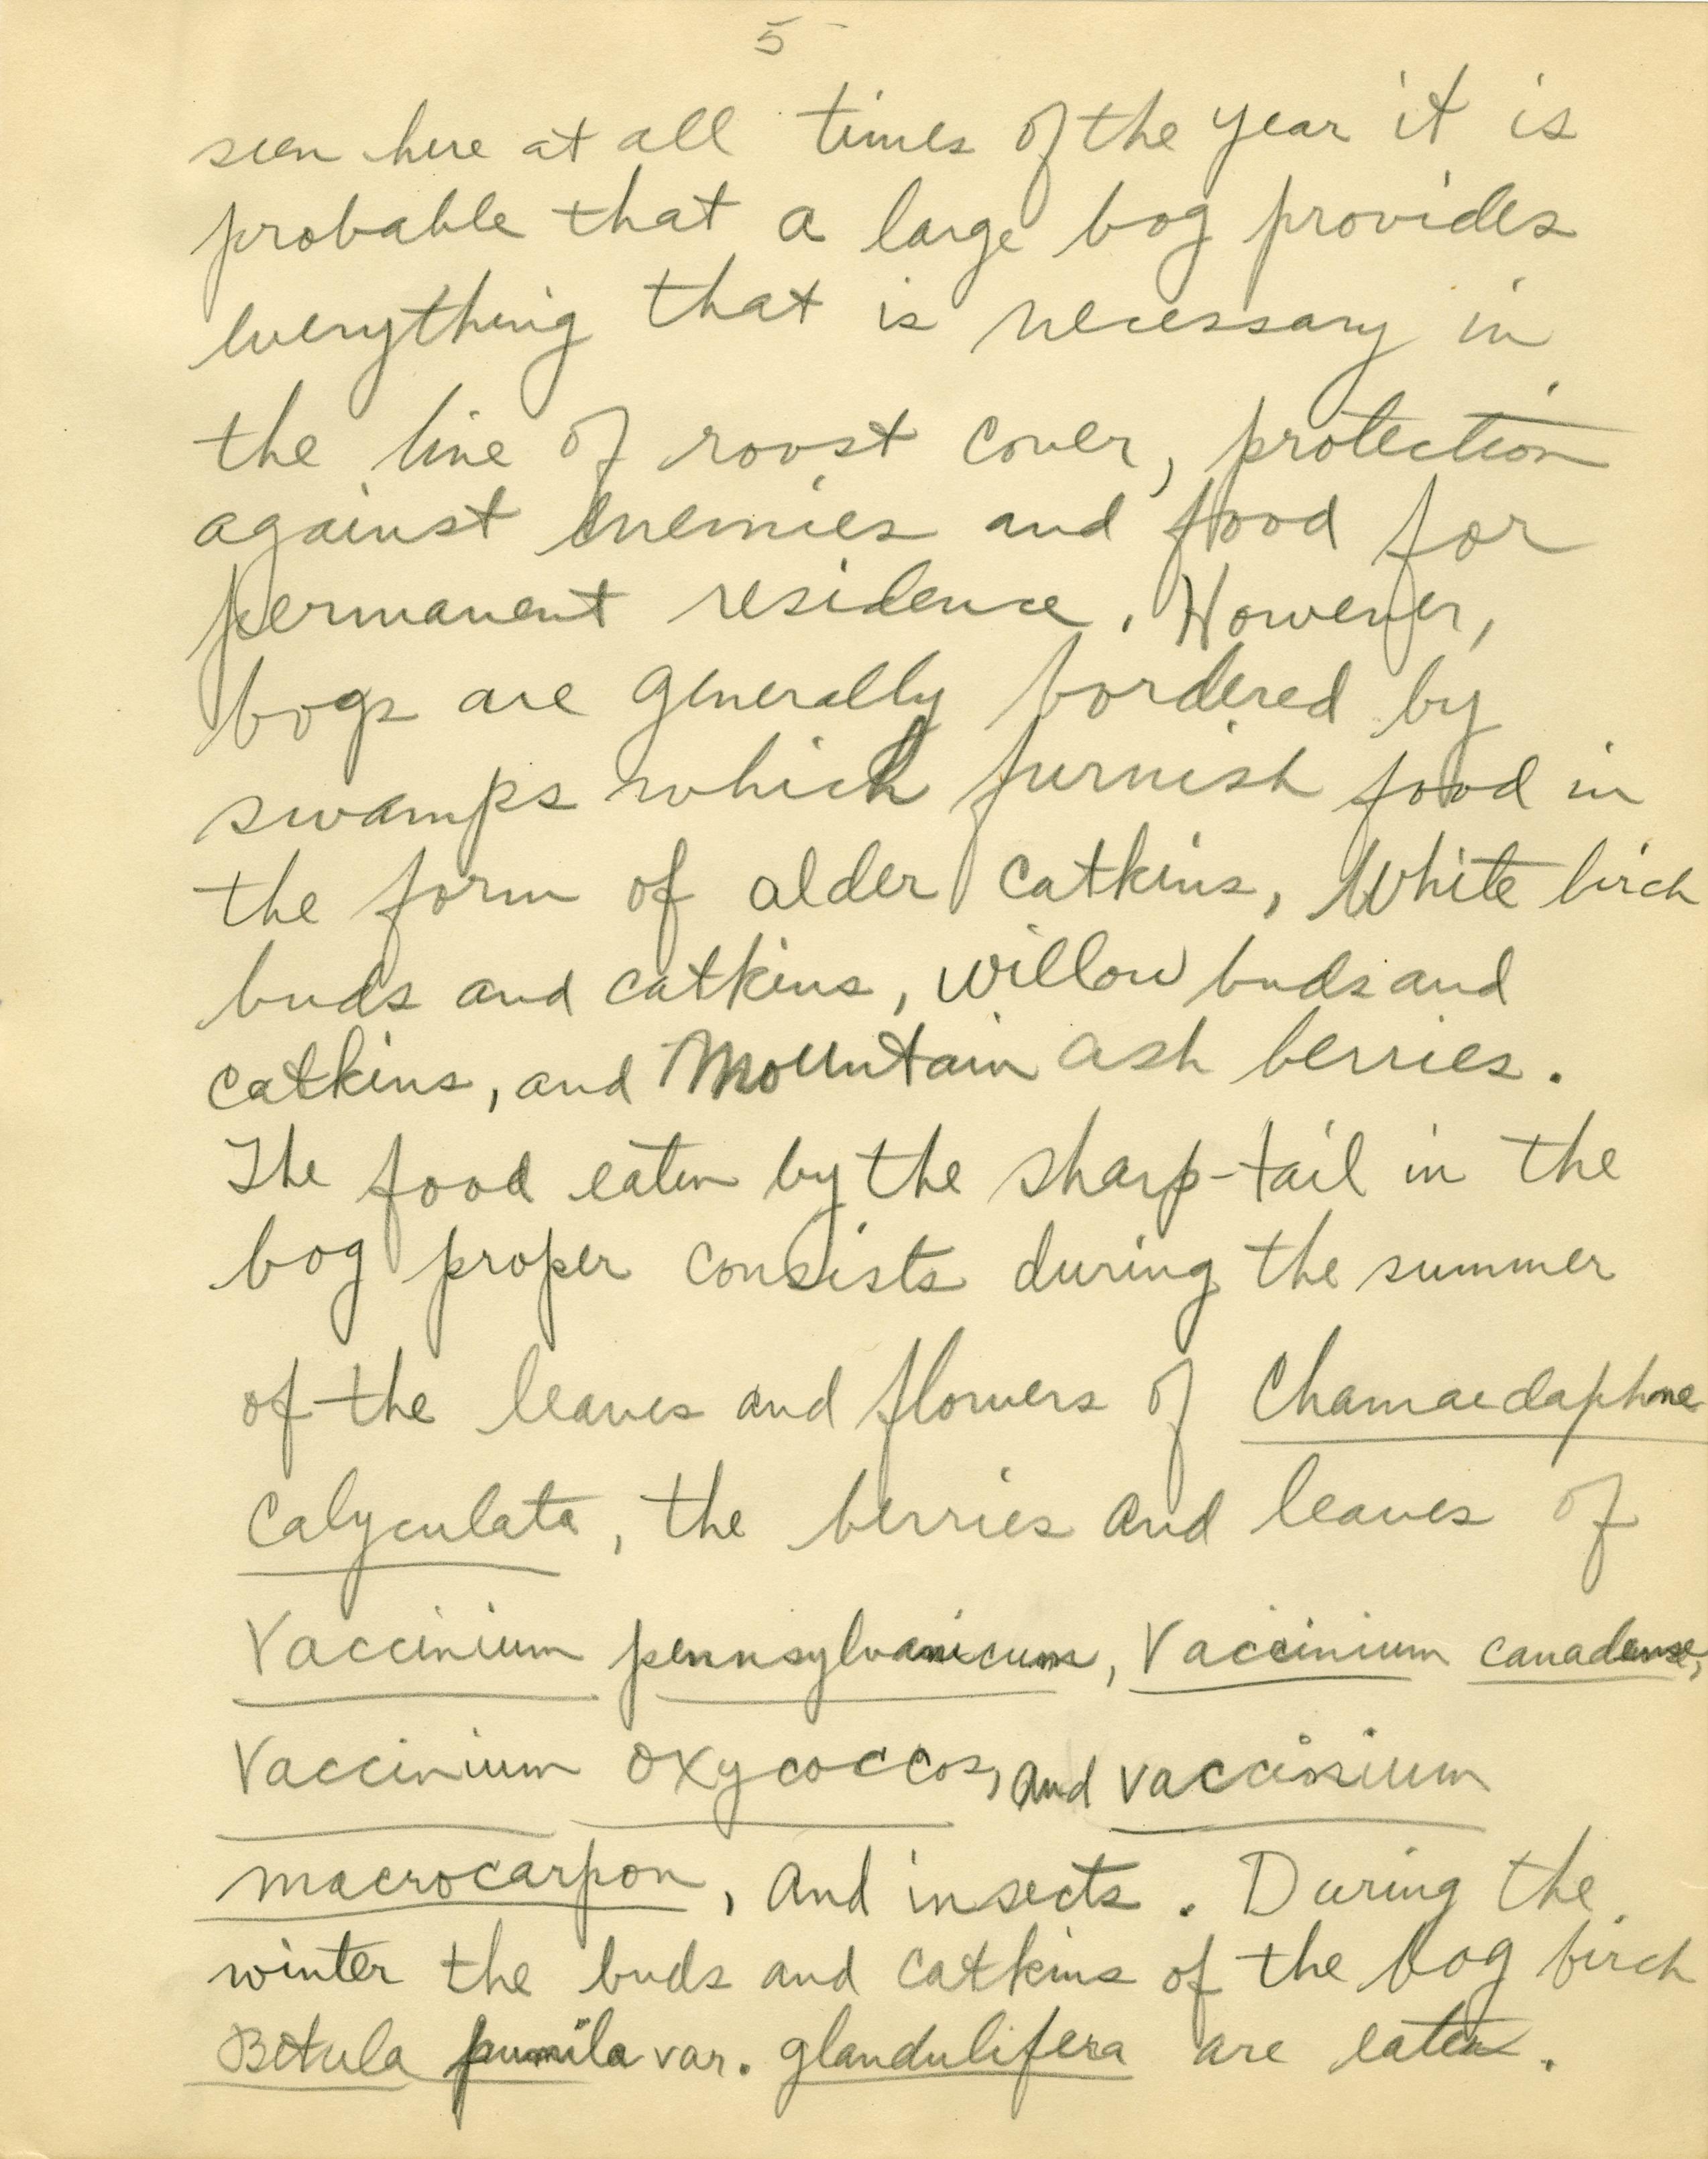 5
seen here at all times of the year it is
probable that a large bog provides
everything that is necessary in
the line of roost cover, protection
against enemies and food for
permanent residence. However,
bogs are generally bordered by
swamps which furnish food in
the form of alder catkins, White birch
buds and catkins, willow buds and
catkins, and Mountain ash berries.
The food eaten by the sharp-tail in the
bog proper consists during the summer
of the leaves and flowers of Chamaedaphne
Calyculata, the berries and leaves of
Vaccinium pennsylvanicum, Vaccinium canadense,
Vaccinium oxycoccos, and vaccinium
macrocarpon, and insects. During the
winter the buds and catkins of the bog birch
Betula pumila var. glandulifera are eaten.